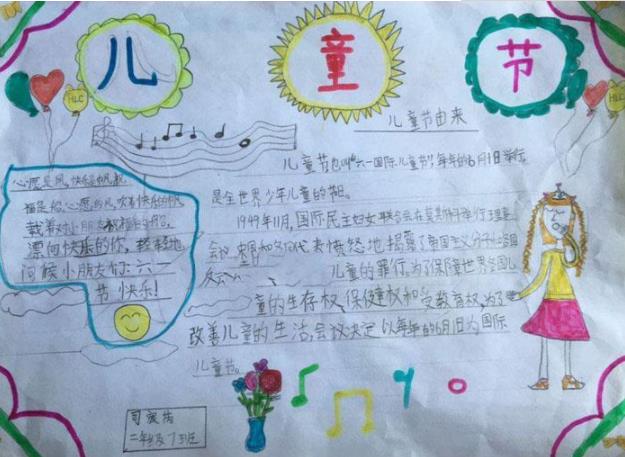 儿 童 节
儿童节由来
儿童节也叫"六一国际儿童节",每年的6月1日举行,
是全世界少年儿童的节日。
1949年11月,国际民主妇女联合会在莫斯科举行理事
会议,中国和各国代表愤怒地揭露了帝国主义分子
儿童的罪行,为了保障世界各国儿
童的生存权、保健权和受教育权,为了
改善儿童的生活,会议决定以每年的6月1日为国际
儿童节。
心愿是风,快乐是帆,
福是船,心愿的风,吹着快乐的帆
载着对小朋友祝福的船,
漂向快乐的你,轻轻地
问候小朋友们:六一
节快乐!
二年级7班